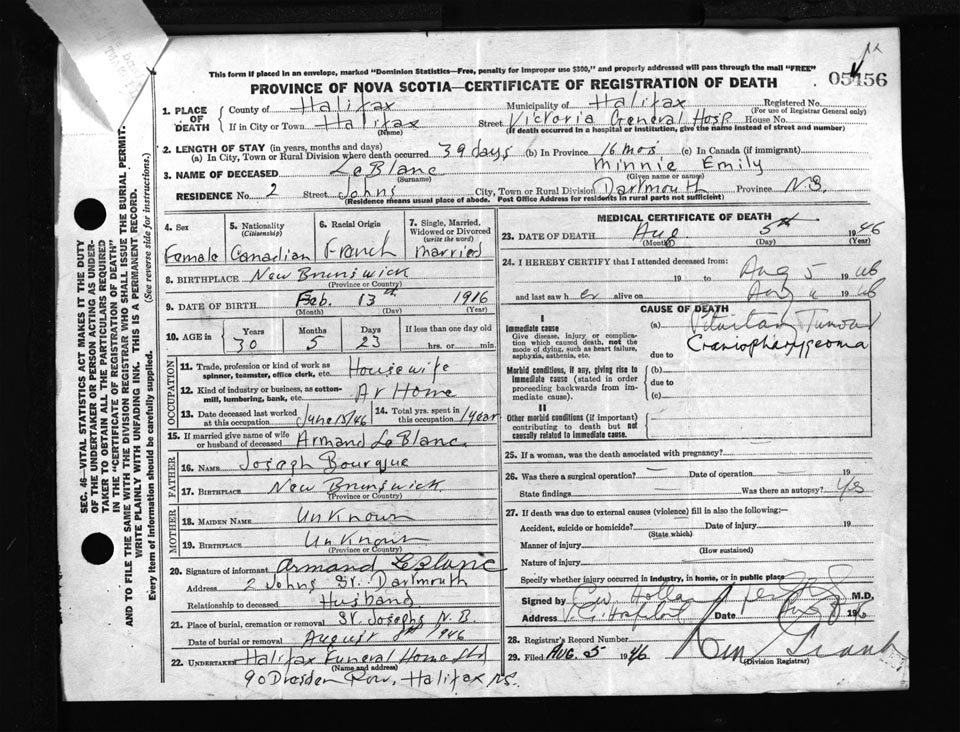 This form if placed in an envelope, marked "Dominion Statistics—Free, penalty for improper use $300," and properly addressed will pass through the mail "FREE"
PROVINCE OF NOVA SCOTIA—CERTIFICATE OF REGISTRATION OF DEATH
1. PLACE OF DEATH County of Halifax Municipality of Halifax Registered No.
(For use of Registrar General only)
If in City or Town Halifax Street Victoria General Hosp House No.
(Name) (If death occurred in a hospital or institution, give the name instead of street and number)
2. LENGTH OF STAY (in years, months and days)
(a) In City, Town or Rural Division where death occurred 39 days (b) In Province 16 mos (c) In Canada (if immigrant)
3. NAME OF DECEASED LeBlanc Minnie Emily
(Surname) (Given name or names)
RESIDENCE No. 2 Street Johns City, Town or Rural Division Dartmouth Province N.S.
(Residence means usual place of abode. Post Office Address for residents in rural parts not sufficient)
SEC. 46—VITAL STATISTICS ACT MAKES IT THE DUTY
OF THE UNDERTAKER OR PERSON ACTING AS UNDER-
TAKER TO OBTAIN ALL THE PARTICULARS REQUIRED
IN THE "CERTIFICATE OF REGISTRATION OF DEATH"
AND TO FILE THE SAME WITH THE DIVISION REGISTRAR WHO SHALL ISSUE THE BURIAL PERMIT.
WRITE PLAINLY WITH UNFADING INK. THIS IS A PERMANENT RECORD.
Every item of information should be carefully supplied. (See reverse side for instructions.)
4. Sex 5. Nationality (Citizenship) 6. Racial Origin 7. Single, Married, Widowed or Divorced (write the word)
Female Canadian French Married
8. BIRTHPLACE New Brunswick
(Province or Country)
9. DATE OF BIRTH Feb. 13th 1916
(Month) (Day) (Year)
10. AGE in Years Months Days If less than one day old
30 5 23 hrs. or min.
OCCUPATION
11. Trade, profession or kind of work as spinner, teamster, office clerk, etc. Housewife
12. Kind of industry or business, as cotton-mill, lumbering, bank, etc. At Home
13. Date deceased last worked at this occupation June 15/46 14. Total yrs. spent in this occupation 1 year
15. If married give name of wife or husband of deceased Armand LeBlanc
FATHER
16. NAME Joseph Bourque
17. BIRTHPLACE New Brunswick
(Province or Country)
MOTHER
18. MAIDEN NAME Unknown
19. BIRTHPLACE Unknown
(Province or Country)
20. Signature of informant Armand LeBlanc
Address 2 Johns St. Dartmouth
Relationship to deceased Husband
21. Place of burial, cremation or removal St. Josephs N.B.
Date of burial or removal August 8th 1946
22. UNDERTAKER Halifax Funeral Home Ltd
(Name and address)
90 Dresden Row, Halifax N.S.
MEDICAL CERTIFICATE OF DEATH
23. DATE OF DEATH Aug 5th 1946
(Month) (Day) (Year)
24. I HEREBY CERTIFY that I attended deceased from:
19 to Aug 5 1946
and last saw her alive on Aug 1946
CAUSE OF DEATH
I
Immediate cause
Give disease, injury or complication which caused death, not the mode of dying, such as heart failure, asphyxia, asthenia, etc.
(a) Pituitary Tumour
due to Craniopharyngeoma
Morbid conditions, if any, giving rise to immediate cause (stated in order proceeding backwards from immediate cause).
(b)
due to
(c)
II
Other morbid conditions (if important) contributing to death but not causally related to immediate cause.
25. If a woman, was the death associated with pregnancy?
26. Was there a surgical operation? Date of operation 19
State findings Was there an autopsy? Yes
27. If death was due to external causes (violence) fill in also the following:—
Accident, suicide or homicide? Date of injury 19
(State which)
Manner of injury
(How sustained)
Nature of injury
Specify whether injury occurred in industry, in home, or in public place
Signed by M.D.
Address Date
28. Registrar's Record Number
29. Filed AUG. 5 1946
(Division Registrar)